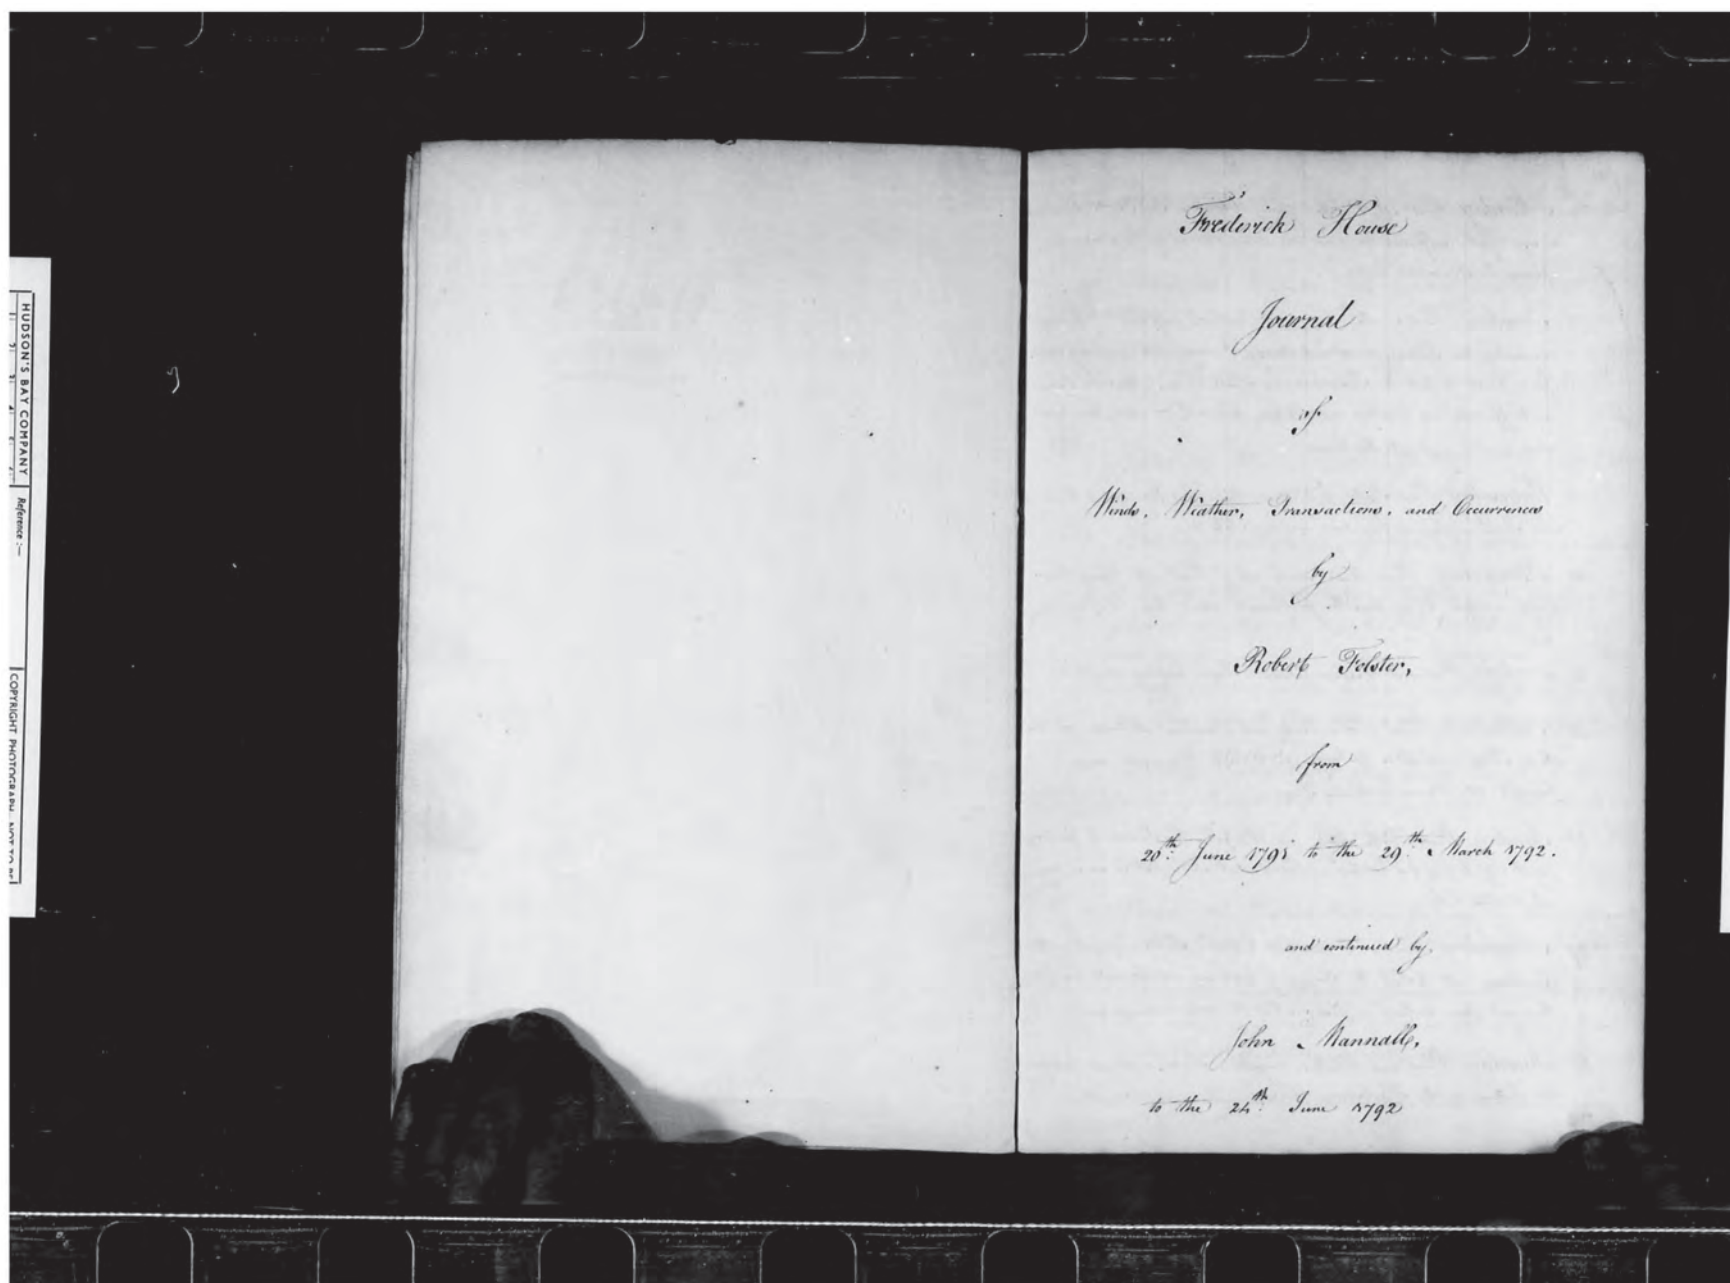 HUDSON'S BAY COMPANY
Reference :—
COPYRIGHT PHOTOGRAPH
Frederick House
Journal
of
Winds, Weather, Transactions, and Occurrences
by
Robert Folster,
from
20th June 1791 to the 29th March 1792.
and continued by
John Mannall,
to the 24th June 1792